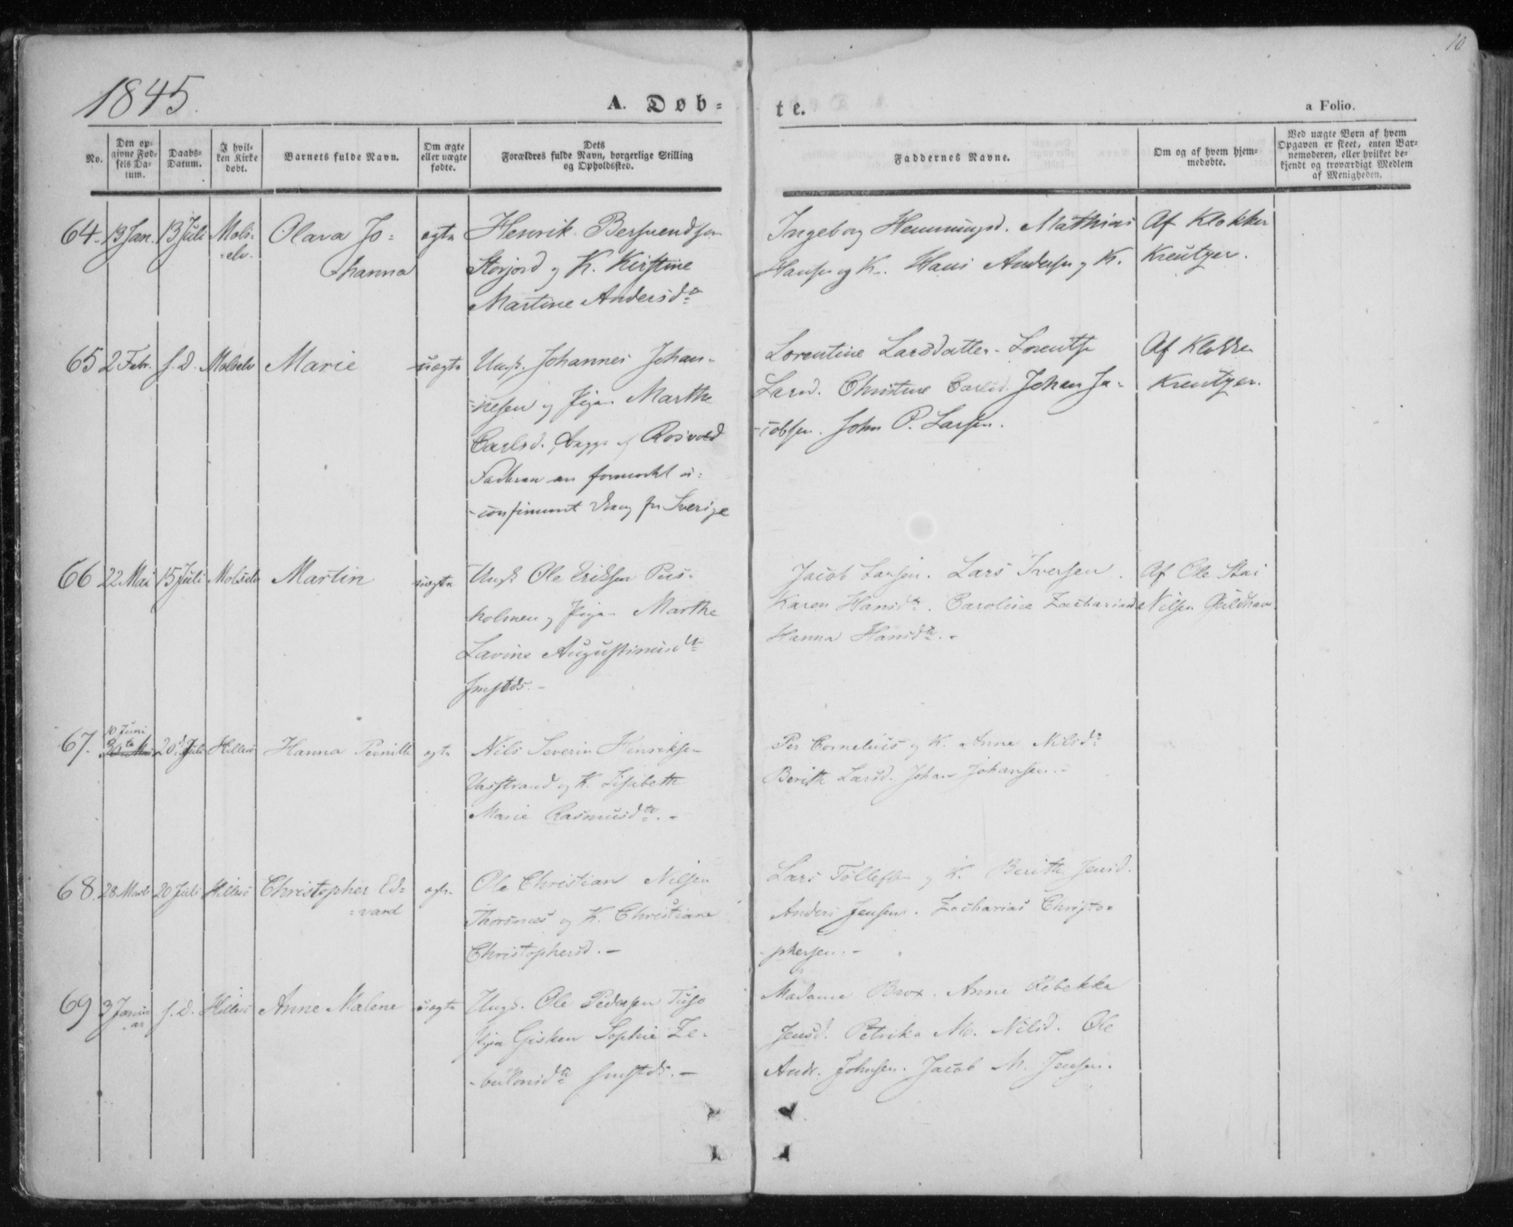 10
1845.
A. Døb=
te.
a Folio.
No.
Den opgivne Fødsels Datum.
Daabs-Datum.
I hvilken Kirke døbt.
Barnets fulde Navn.
Om ægte eller uægte fødte.
Dets Forældres fulde Navn, borgerlige Stilling og Opholdssted.
Faddernes Navne.
Om og af hvem hjemmedøbte.
Ved uægte Børn af hvem Opgaven er skeet, enten Barnemoderen, eller hvilket bekjendt og troværdigt Medlem af Menigheden.
64. 13 Jan. 13 Juli Mols= Olava Jo= egte Henrik
elv. hanna Storjord og K. Kirstine
Martine Andersd
Ingeborg Hemmingsd. Mathias Af Klokker
Hansen og K. Hans Andersen og K. Kreutzer.
65 2 Febr. s. D. Molselv Marie uegte Ungk. Johannes Johan-
nesen og Pige Marthe
Carlsd. Rosvold
Faderen en
confirmeret fra Sverige
Lorentine Larsdatter. Lorents Af Klokker
Larsen. Christine Carlsd. Johan Ja- Kreutzer.
cobsen. John P. Larsen.
66 22 Mai 15 Juli Molselv Martin uegte Ungk. Ole Eriksen
holmen og Pige Marthe
Lavine Augustinusd
Jacob Larsen. Lars Iversen. Af Ole
Karen Hansd. Caroline Zachariasd Nilsen
Hanna Hansd. -
67. 10 Juni 20 Juli Hillesø Hanna Pernille egte Nils Severin Henriksen
og K. Elisabeth
Marie Rasmusd. -
Per Cornelius og K. Anne Nilsd
Berith Larsd. Johan Johansen. -
68. 28 Marts 20 Juli Hillesø Christopher Ed= egte Ole Christian Nilsen
vard Thorsnæs og K. Christiane
Christophersd. -
Lars Tollefs og K. Berith Jensd.
Anders Jensen. Zacharias Christo=
phersen. -
69 3 Janu s. D. Hillesø Anne Malene uegte Ungk. Ole Pedersen
ar Pige Gisken Sophie Ze-
bulonsd -
Madame Brox. Anne Rebekka
Jensd. Petrikke M. Nilsd. Ole
Andr. Johnsen. Jacob M. Jensen.